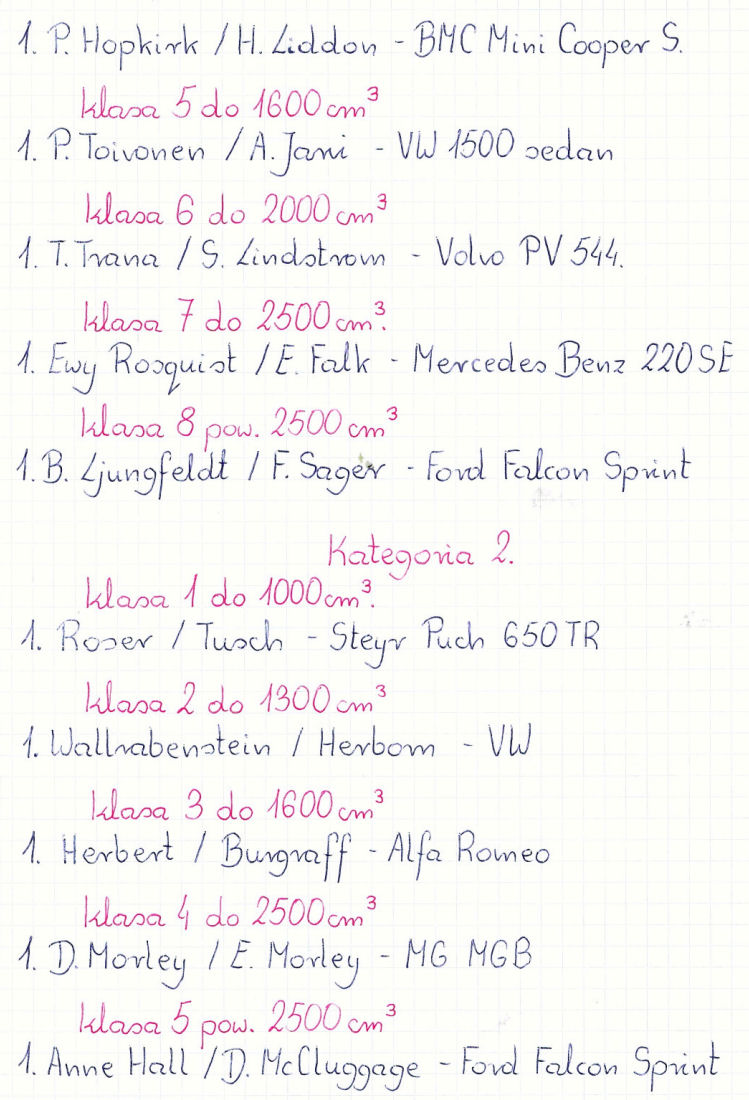 1. P. Hopkirk / H. Liddon - BMC Mini Cooper S.
klasa 5 do 1600 cm³
1. P. Toivonen / A. Jarvi - VW 1500 sedan
klasa 6 do 2000 cm³
1. T. Trana / S. Lindstrom - Volvo PV 544.
klasa 7 do 2500 cm³.
1. Ewy Rosquist / E. Falk - Mercedes Benz 220 SE
klasa 8 pow. 2500 cm³
1. B. Ljungfeldt / F. Sager - Ford Falcon Sprint
Kategoria 2.
klasa 1 do 1000 cm³.
1. Roser / Tusch - Steyr Puch 650 TR
klasa 2 do 1300 cm³
1. Wallrabenstein / Herborn - VW
klasa 3 do 1600 cm³
1. Herbert / Burgraff - Alfa Romeo
klasa 4 do 2500 cm³
1. D. Morley / E. Morley - MG MGB
klasa 5 pow. 2500 cm³
1. Anne Hall / D. McCluggage - Ford Falcon Sprint